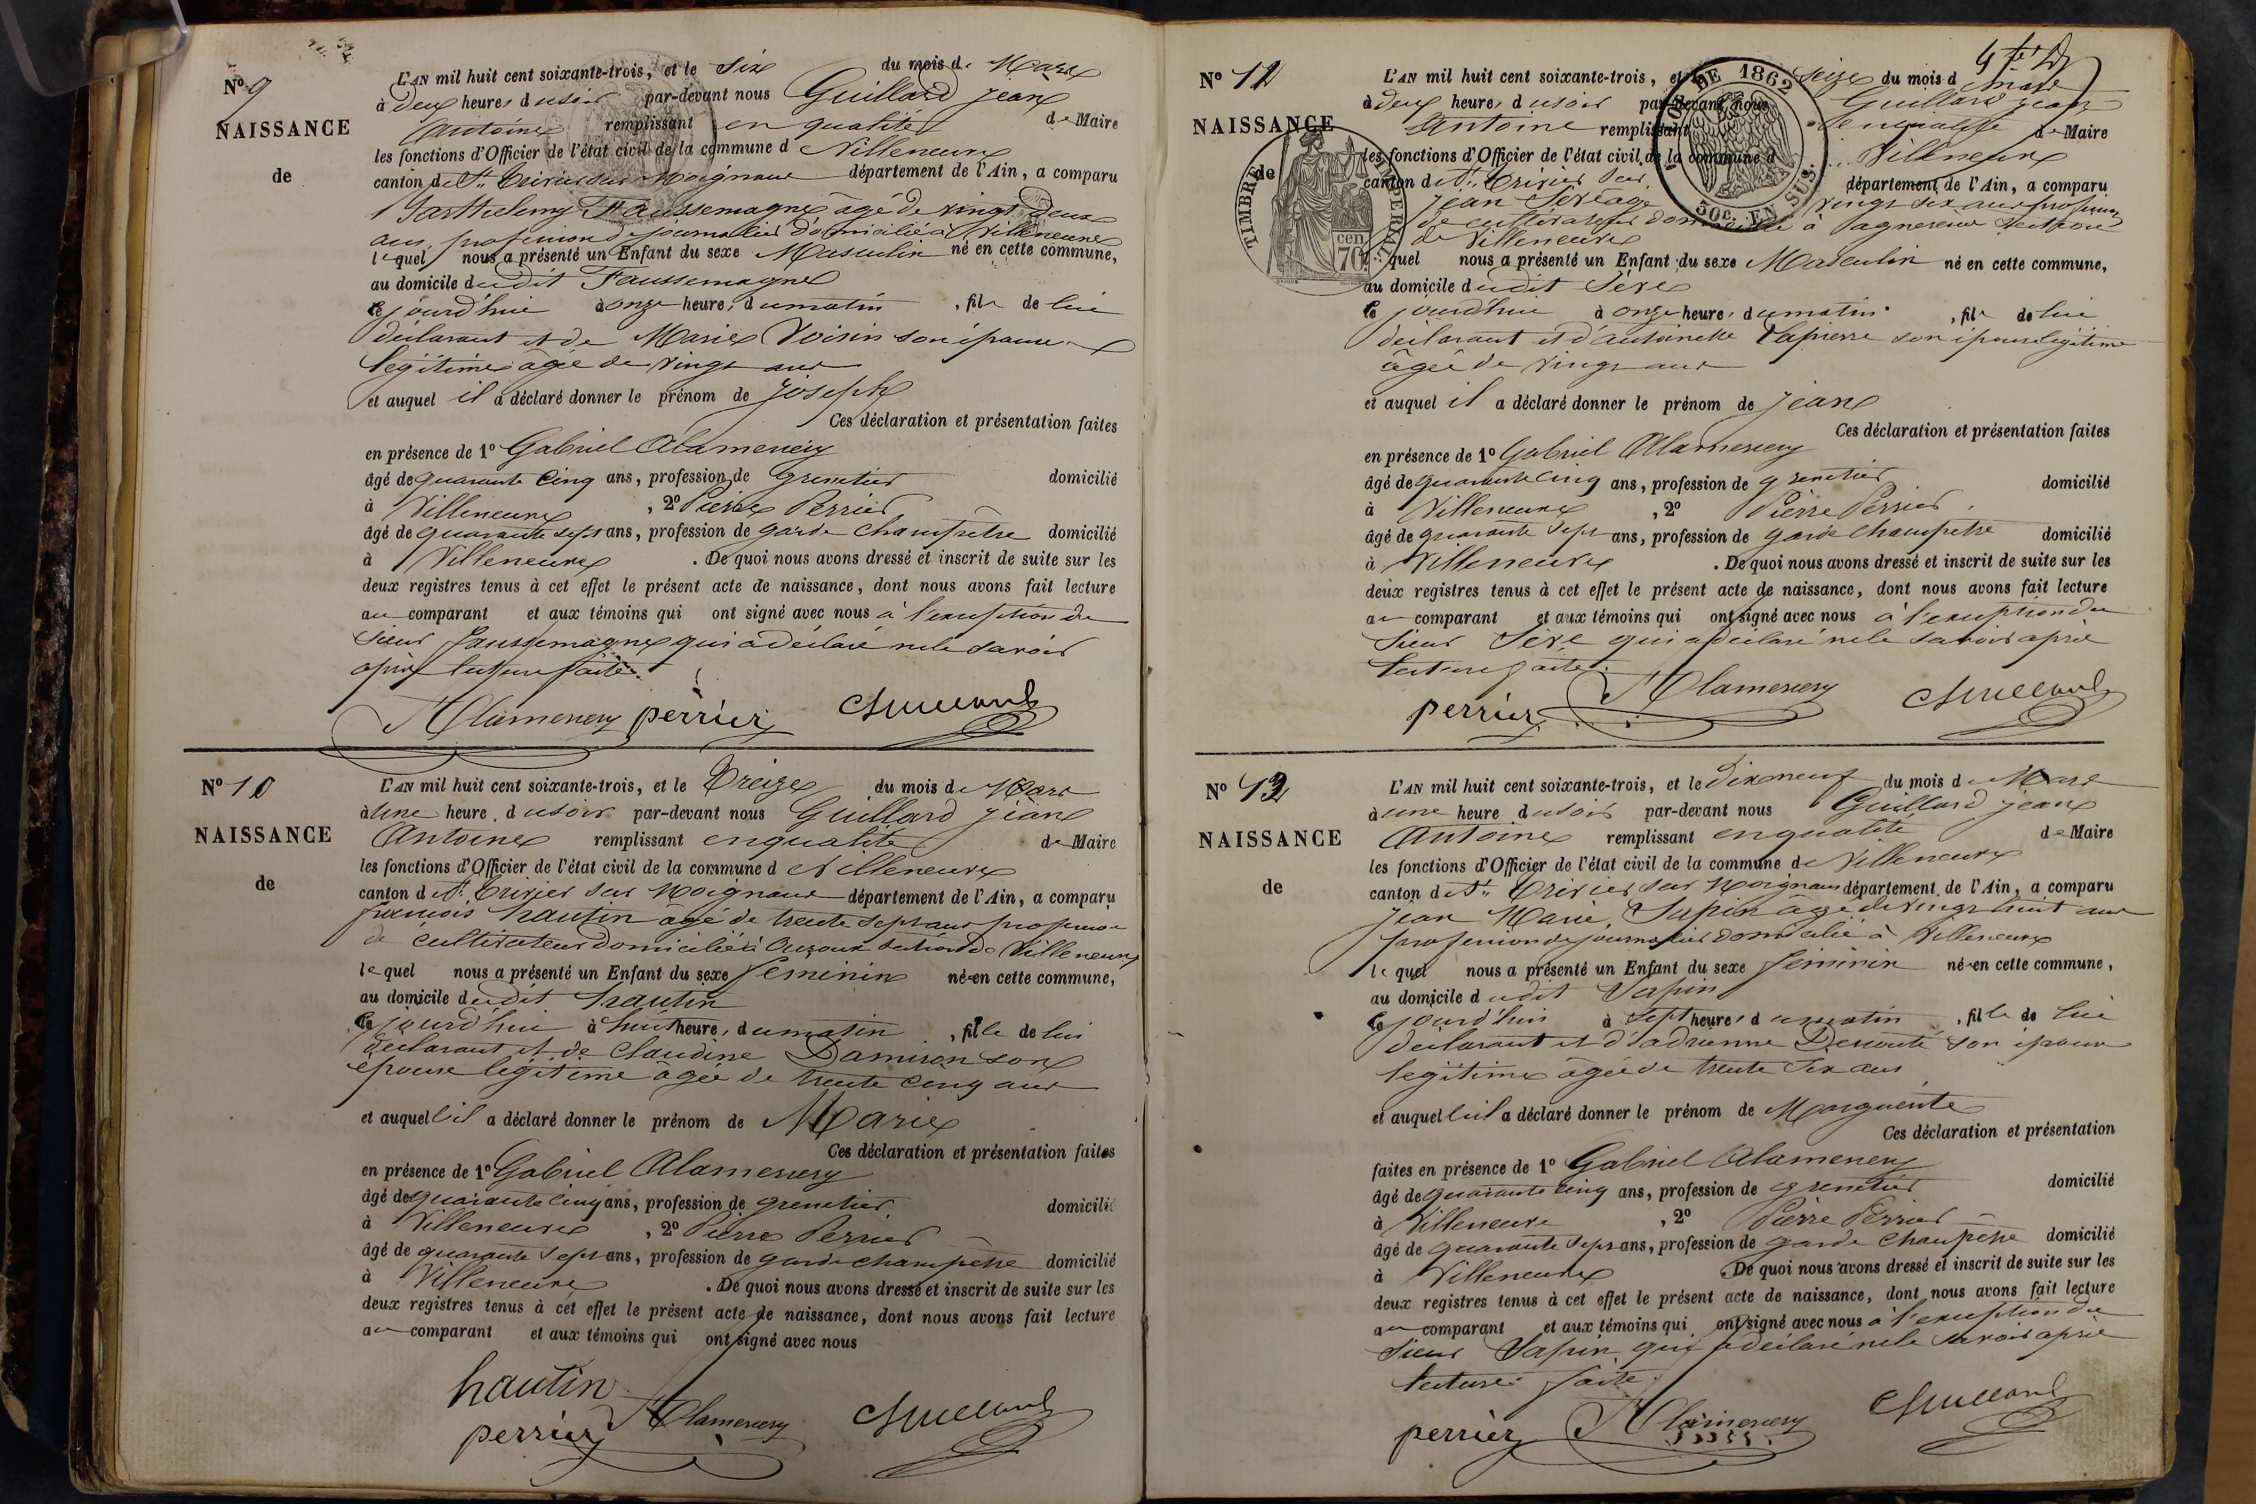 Nº 9
NAISSANCE
de
L'AN mil huit cent soixante-trois, et le six du mois de Mars
à deux heures du soir par-devant nous Guillard jean
Antoine remplissant en qualité de Maire
les fonctions d'Officier de l'état civil de la commune d Villeneuve
canton de St Trivier sur Moignans département de l'Ain, a comparu
Barthelemy Faussemagne âgé de vingt deux
ans, profession de journalier domicilié à Villeneuve
lequel nous a présenté un Enfant du sexe Masculin né en cette commune,
au domicile dudit Faussemagne
ce jourd'hui à onze heures du matin, fils de lui
déclarant et de Marie Voisin son épouse
légitime âgée de vingt ans
et auquel il a déclaré donner le prénom de joseph
Ces déclaration et présentation faites
en présence de 1º Gabriel Alamercery
âgé de quarante cinq ans, profession de grenetier domicilié
à Villeneuve, 2º Pierre Perrier
âgé de quarante sept ans, profession de garde champêtre domicilié
à Villeneuve. De quoi nous avons dressé et inscrit de suite sur les
deux registres tenus à cet effet le présent acte de naissance, dont nous avons fait lecture
au comparant et aux témoins qui ont signé avec nous à l'exception du
sieur Faussemagne qui a déclaré ne le savoir
après lecture faite.
Alamercery perrier Guillard
Nº 10
NAISSANCE
de
L'AN mil huit cent soixante-trois, et le Treize du mois de Mars
à une heure du soir par-devant nous Guillard jean
Antoine remplissant en qualité de Maire
les fonctions d'Officier de l'état civil de la commune d Villeneuve
canton de St Trivier sur Moignans département de l'Ain, a comparu
françois hautin âgé de trente sept ans profession
de cultivateur domicilié à Ouzoux section de Villeneuve
lequel nous a présenté un Enfant du sexe féminin né en cette commune,
au domicile dudit hautin
ce jourd'hui à huit heures du matin, fille de lui
déclarant et de Claudine Damiron son
épouse légitime âgée de trente cinq ans
et auquel il a déclaré donner le prénom de Marie
Ces déclaration et présentation faites
en présence de 1º Gabriel Alamercery
âgé de quarante cinq ans, profession de grenetier domicilié
à Villeneuve, 2º Pierre Perrier
âgé de quarante sept ans, profession de garde champêtre domicilié
à Villeneuve. De quoi nous avons dressé et inscrit de suite sur les
deux registres tenus à cet effet le présent acte de naissance, dont nous avons fait lecture
au comparant et aux témoins qui ont signé avec nous
hautin
perrier Alamercery Guillard
Nº 12
NAISSANCE
de
TIMBRE IMPÉRIAL
70 cen
DE 1862
50c. EN SUS.
L'AN mil huit cent soixante-trois, et le seize du mois d mars
à deux heures du soir par-devant nous Guillard jean
Antoine remplissant en qualité de Maire
les fonctions d'Officier de l'état civil de la commune d Villeneuve
canton de St Trivier sur département de l'Ain, a comparu
jean Sève âgé vingt six ans profession
de cultivateur domicilié à Agnereins section
de Villeneuve
lequel nous a présenté un Enfant du sexe Masculin né en cette commune,
au domicile dudit Sève
ce jourd'hui à onze heures du matin, fils de lui
déclarant et d'antoinette Lapierre son épouse légitime
âgée de vingt ans
et auquel il a déclaré donner le prénom de jean
Ces déclaration et présentation faites
en présence de 1º Gabriel Alamercery
âgé de quarante cinq ans, profession de grenetier domicilié
à Villeneuve, 2º Pierre Perrier
âgé de quarante sept ans, profession de garde champetre domicilié
à Villeneuve. De quoi nous avons dressé et inscrit de suite sur les
deux registres tenus à cet effet le présent acte de naissance, dont nous avons fait lecture
au comparant et aux témoins qui ont signé avec nous à l'exception du
sieur Sève qui a déclaré ne le savoir après
lecture faite.
perrier Alamercery Guillard
Nº 13
NAISSANCE
de
L'AN mil huit cent soixante-trois, et le dix neuf du mois de Mars
à une heure du soir par-devant nous Guillard jean
Antoine remplissant en qualité de Maire
les fonctions d'Officier de l'état civil de la commune de Villeneuve
canton de St Trivier sur Moignans département de l'Ain, a comparu
jean Marie Sapin âgé de vingt huit ans
profession de journalier domicilié à Villeneuve
lequel nous a présenté un Enfant du sexe féminin né en cette commune,
au domicile dudit Sapin
ce jourd'hui à sept heures du matin, fille de lui
déclarant et d'adrienne son épouse
légitime âgée de trente six ans
et auquel il a déclaré donner le prénom de Marguerite
Ces déclaration et présentation
faites en présence de 1º Gabriel Alamercery
âgé de quarante cinq ans, profession de grenetier domicilié
à Villeneuve, 2º Pierre Perrier
âgé de quarante sept ans, profession de garde champetre domicilié
à Villeneuve. De quoi nous avons dressé et inscrit de suite sur les
deux registres tenus à cet effet le présent acte de naissance, dont nous avons fait lecture
au comparant et aux témoins qui ont signé avec nous à l'exception du
sieur Sapin qui a déclaré ne le savoir après
lecture faite.
perrier Alamercery Guillard